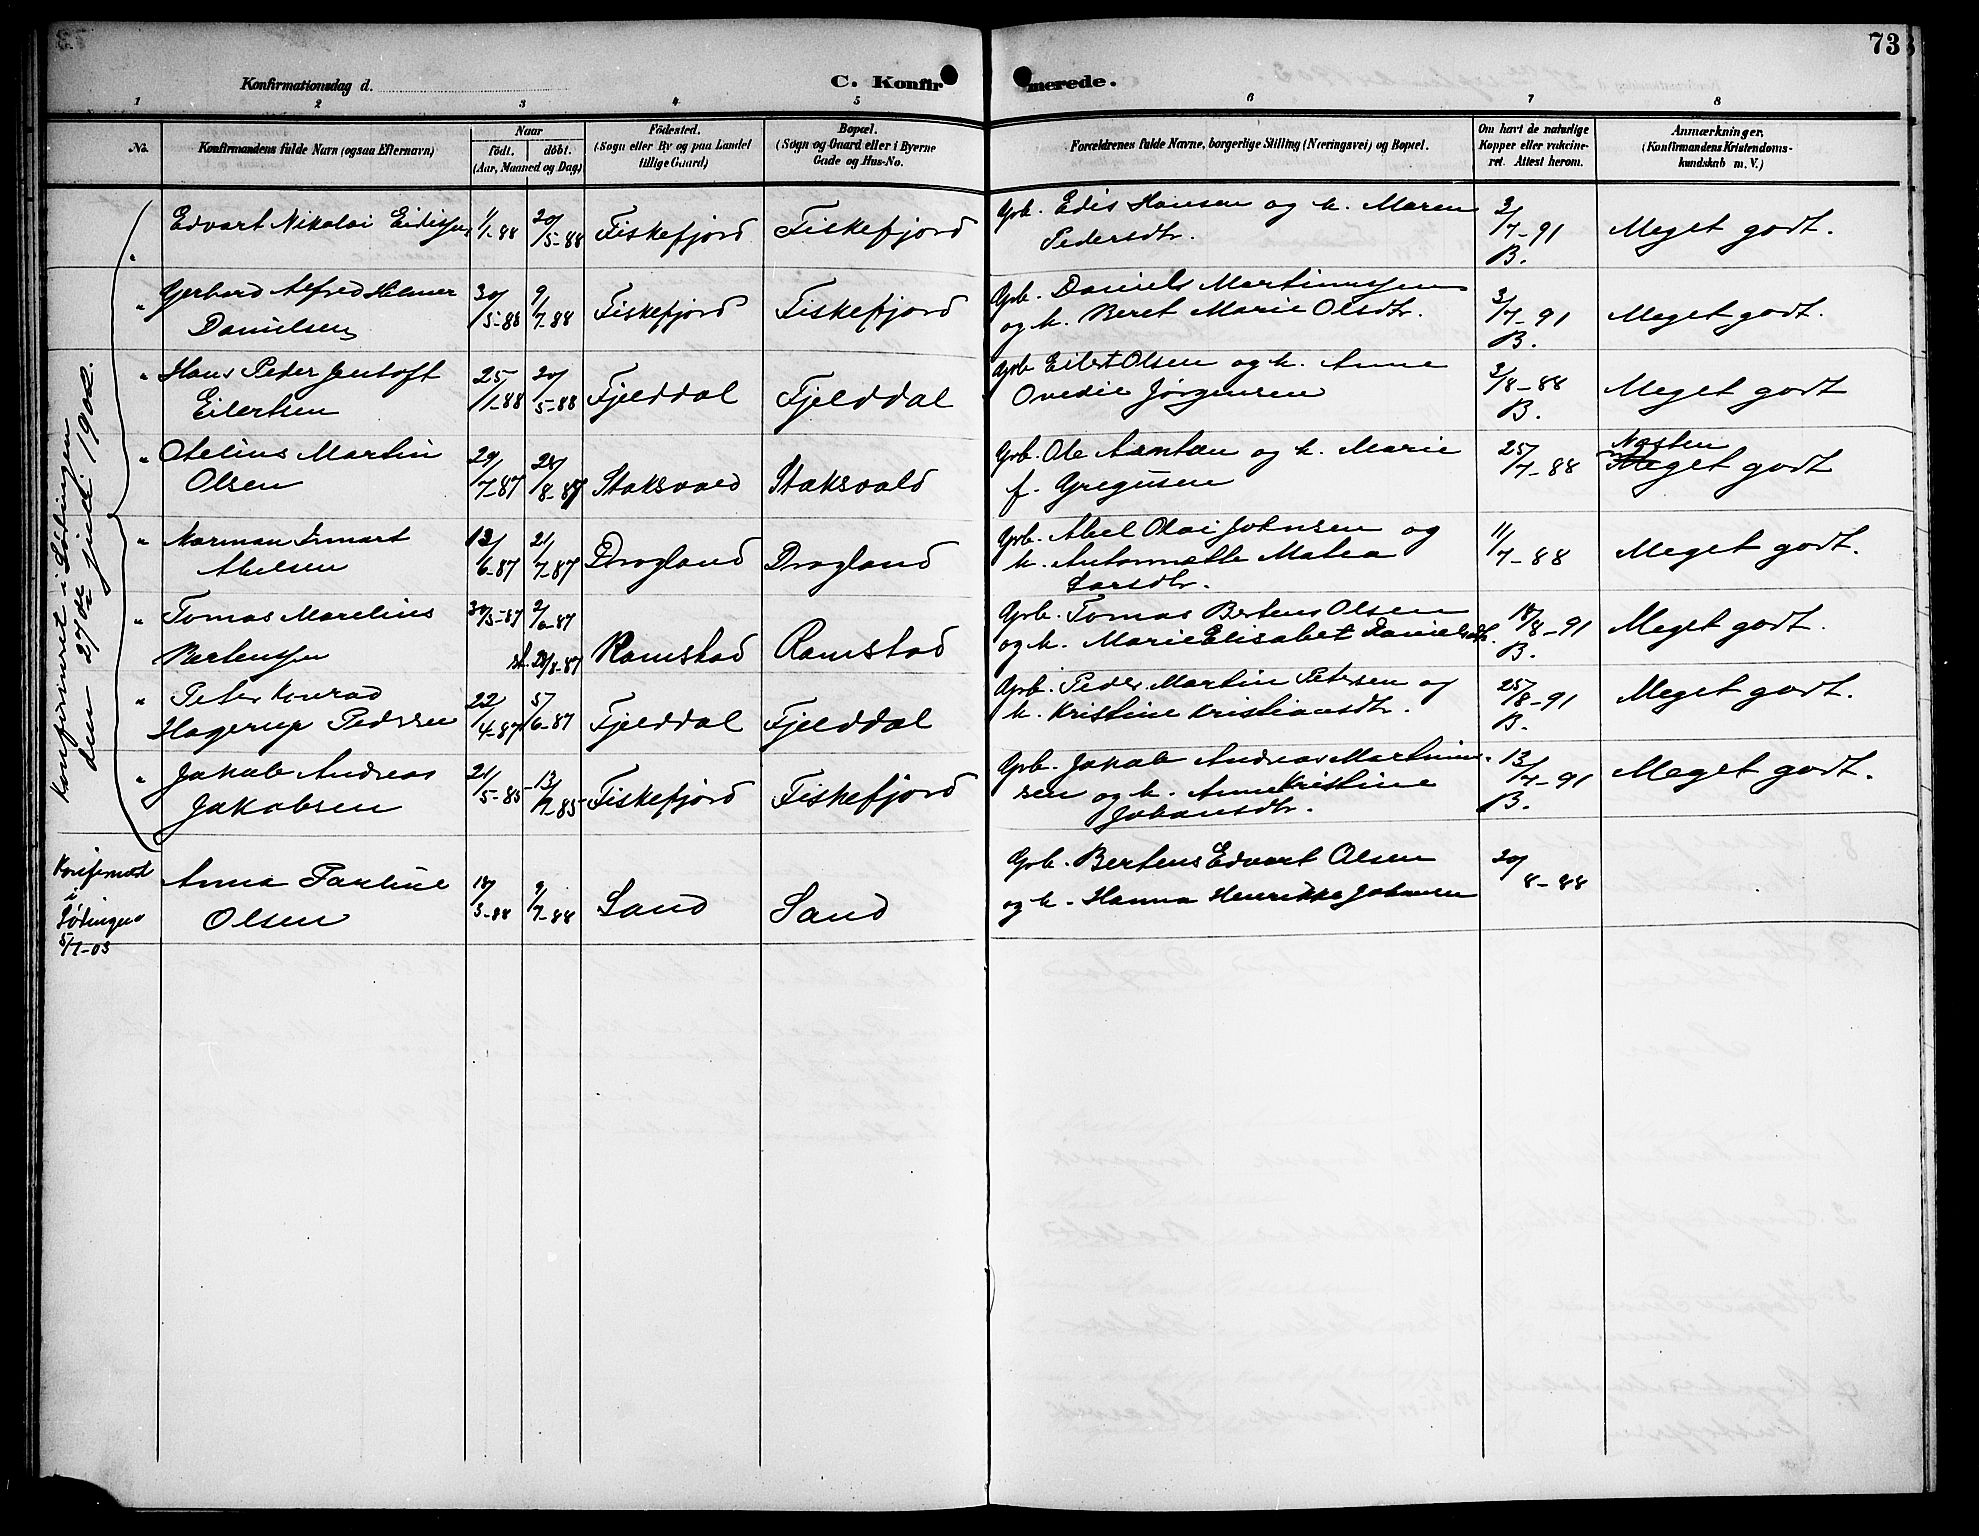 73
Konfirmationsdag d.
C. Konfirmerede.
1 2 3 4 5 6 7 8
No.
Konfirmandens fulde Navn (ogsaa Efternavn)
Naar
födt. döbt.
(Aar, Maaned og Dag)
Födested.
(Sogn eller By og paa Landet
tillige Gaard)
Bopæl.
(Sogn og Gaard eller i Byerne
Gade og Hus-No.
Forældrenes fulde Navne, borgerlige Stilling (Næringsvei) og Bopæl.
Om havt de naturlige
Kopper eller vakcine-
ret. Attest herom.
Anmærkninger.
(Konfirmandens Kristendoms-
kundskab m. V.)
Konfirmeret i Lødingen
den 27de juli 1902.
" Edvart Nikolai 1/1-88 20/5-88 Fiskefjord Fiskefjord Grb. Edis Hansen og h. Maren
Pedersdtr. 3/7-91 B. Meget godt.
" Gerhard Alfred Hilmer
Danielsen 30/5-88 9/7-88 Fiskefjord Fiskefjord Grb. Daniels Martinussen
og h. Beret Marie Olsdtr. 3/7-91 B. Meget godt.
" Hans Peder Jentoft
Eilertsen 25/1-88 20/5-88 Fjelddal Fjelddal Grb Eilert Olsen og h. Anne
Ovedie Jørgensen 3/8-88 B. Meget godt
" Martin
Olsen 29/7-87 28/8-87 Staksvold Staksvold Grb. Ole og h. Marie
f. Gregusen 25/7-88 Næsten
Meget godt
" Norman
Abelsen 12/6-87 21/7-87 Drogland Drogland Grb. Abel Olai Johnsen og
h. Antonnette Matea
Larsdtr. 11/7-88 Meget godt.
" Tomas Marelius
Bertenssen 30/3-87 st. 28/8-87 Ramstad Ramstad Grb. Tomas Bertens Olsen
og h. Marie Elisabet Danielsdtr. 18/8-91 B. Meget godt.
" Peter Konrad
Hagerup Pedersen 22/4-87 5/6-87 Fjelddal Fjelddal Grb. Peder Martin Petersen og
h. Kristine Kristiansdtr. 25/8-91 B. Meget godt.
" Jakob Andreas
Jakobsen 21/5-85 Fiskefjord Fiskefjord Grb. Jakob Andreas Martinus-
sen og h. Anne Kristine
Johansdtr. 13/7-91 B. Meget godt.
Konfirmeret
i
Lødingen
5/7-03
Anna Parline
Olsen 18/3-88 9/7-88 Sand Sand Grb. Bertens Edvart Olsen
og h. Hanna Henrikke Johansen 30/8-88